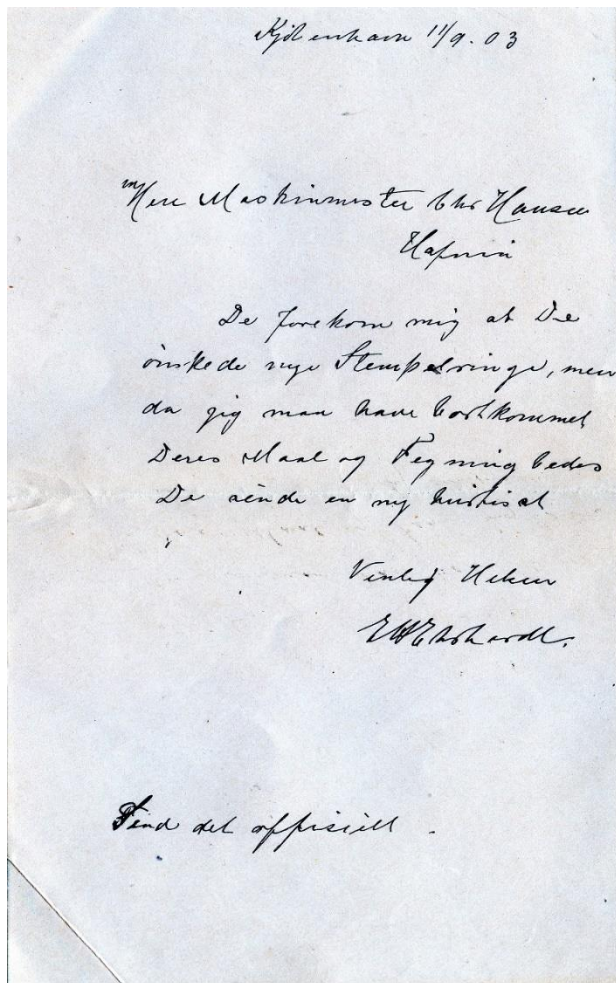 Kjöbenhavn 11/9. 03
Herr Maskinmester Chr Hansen
Hafnia
De forekom mig at De
önskede nye Stempelringe, men
da jeg maa have bortkommet
Deres Maal og Tegning bedes
De sende en ny hurtigst
Venlig Hilsen
Ehrhardt.
Send det officielt.